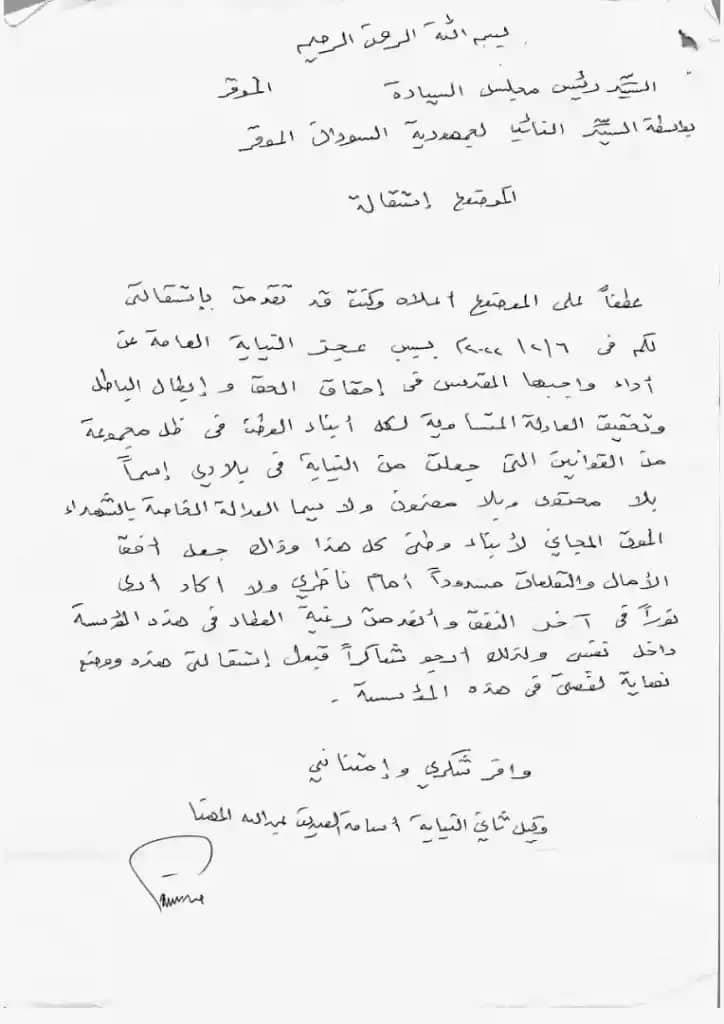 بسم الله الرحمن الرحيم
السيد رئيس مجلس السيادة الموقر
بواسطة السيد النائب لجمهورية السودان الموقر
الموضوع إستقالة
عطفاً على الموضوع أعلاه وكنت قد تقدمت بإستقالتي
لكم في ٦/٢/٢٠٢٢ بسبب عجز النيابة العامة عن
أداء واجبها المقدس في إحقاق الحق و إبطال الباطل
وتحقيق العدالة المتساوية لكل أبناء الوطن في ظل مجموعة
من القوانين التي جعلت من النيابة في بلادي إسماً
بلا محتوى وبلا مضمون ولا سيما العدالة الخاصة بالشهداء
الموت المجاني لأبناء وطني كل هذا وذاك جعل أفق
الآمال والتطلعات مسدوداً أمام ناظري ولا اكاد أرى
نوراً في آخر النفق و أنعدمت رغبة العطاء في هذه المؤسسة
داخل نفسي ولذلك أرجو شاكراً قبول إستقالتي هذه ووضع
نهاية لقصتي في هذه المؤسسة .
وافر شكري و إمتناني
وكيل ثاني النيابة أسامة الصديق عبدالله المهنا